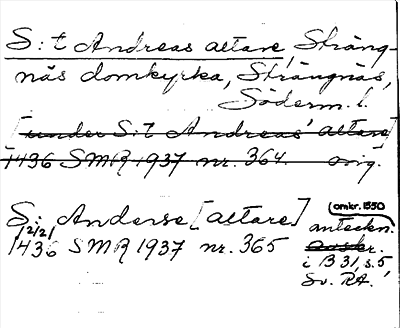 S:t Andreas altare, Sträng-
näs domkyrka, Strängnäs,
Söderm. l.
[under S:t Andreas' altare]
1436 SMR 1937 nr. 364. orig.
S: Anderse [altare] omkr. 1550
12/2 1436 SMR 1937 nr. 365 anteckn.
i B 31, s. 5,
Sv. RA.